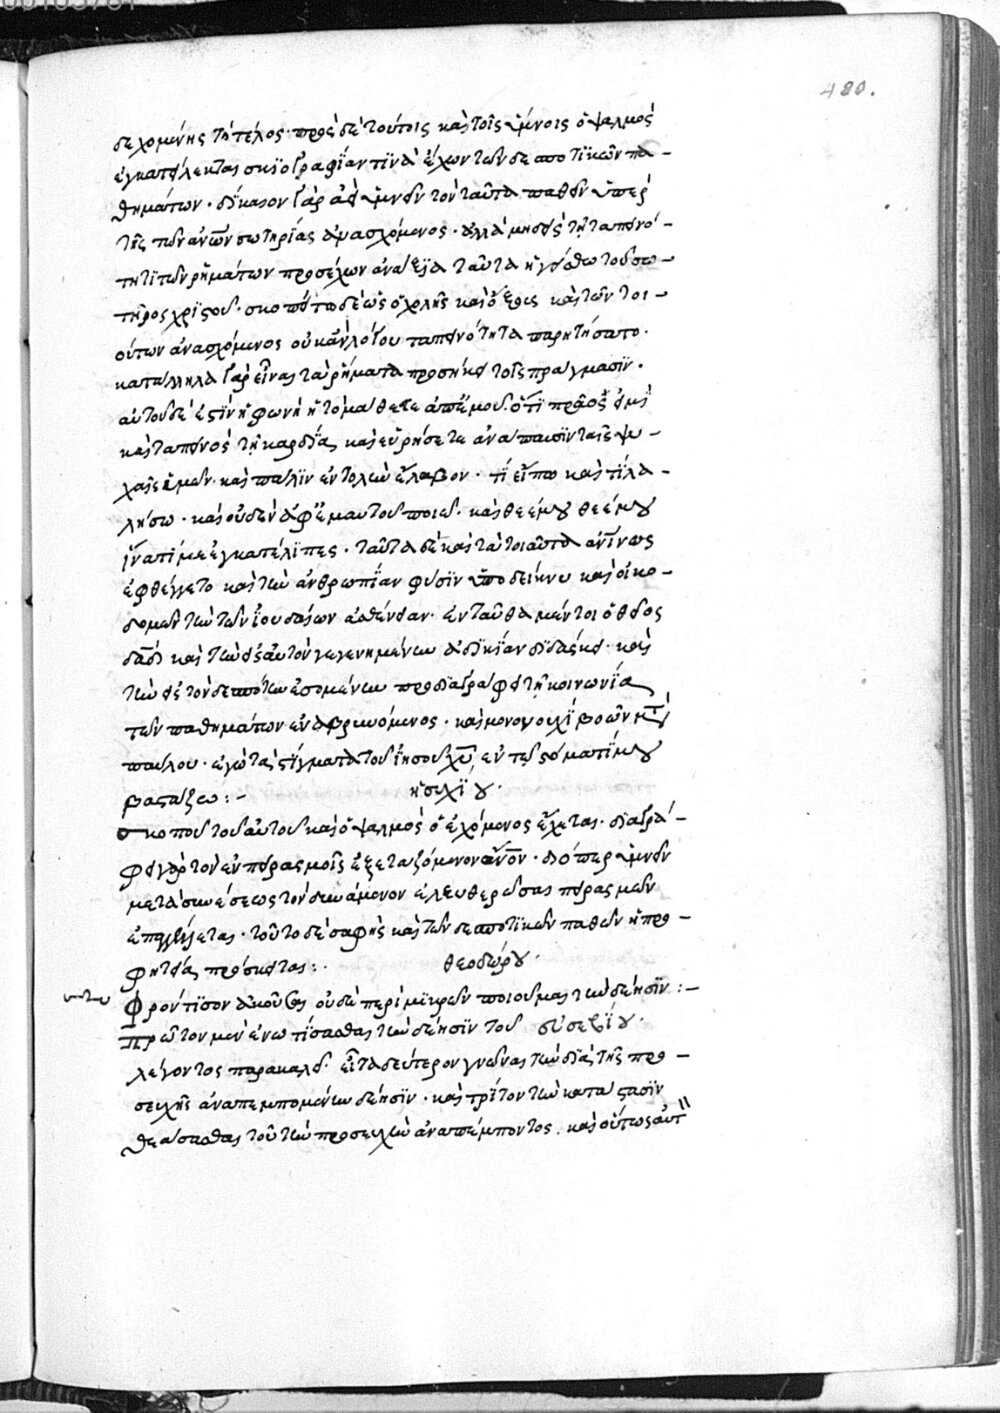 480.
δεχομένης τὸ τέλος· πρὸς δὲ τούτοις καὶ τοῖς ὕμνοις ὁ ψαλμὸς
ἐγκατείλεκται σκϊογραφΐαν τϊνὰ ἔχων τῶν δεσποτϊκῶν πα-
θημάτων· δίκαιον γὰρ ἀεὶ ὑμνεῖν τὸν ταῦτα παθεῖν ὑπὲρ
τῆς τῶν ἀνων σωτηρίας ἀνασχόμενος· ἀλλὰ μηδεὶς τῇ ταπεινό-
τητϊ τῶν ῥημάτων προσέχων ἀνάξϊα ταῦτα ἡγείσθω τοῦ σω-
τῆρος χρϊστοῦ· σκοπείτω δὲ ὡς ὁ χολῆς καὶ ὄξους καὶ τῶν τοι-
ούτων ἀνασχόμενος οὐκ ἂν λόγου ταπεινότητα παρῃτήσατο·
κατάλληλα γὰρ εἶναι τὰ ῥήματα προσήκει τοῖς πράγμασϊν·
αὐτοῦ δέ ἐστϊν ἡ φωνὴ ἡ τὸ μάθετε ἀπ' ἐμοῦ ὅτϊ πρᾶος εἰμὶ
καὶ ταπεινὸς τῇ καρδΐᾳ καὶ εὑρήσετε ἀνάπαυσϊν ταῖς ψυ-
χαῖς ὑμῶν· καὶ πάλϊν ἐντολὴν ἔλαβον· τί εἴπω καὶ τί λα-
λήσω· καὶ οὐδὲν ἀφ' ἐμαυτοῦ ποιῶ· καὶ θεέ μου θεέ μου
ἱνατί με ἐγκατέλϊπες· ταῦτα δὲ καὶ τὰ τοιαῦτα ἀνϊνως
ἐφθέγγετο καὶ τὴν ἀνθρωπΐαν φύσϊν ὑποδεικνὺ καὶ οἰκο-
δομῶν τὴν τῶν ἰουδαίων ἀσθένειαν· ἐνταῦθα μέντοι ὁ θεῖος
δαδ καὶ τὴν εἰς ἑαυτὸν γεγενημένην ἀδϊκΐαν δϊδάσκει· καὶ
τὴν εἰς τὸν δεσπότην ἐσομένην προδϊαγράφει τῇ κοινωνίᾳ
τῶν παθημάτων ἐναβρυνόμενος· καὶ μονονουχὶ βοῶν μετὰ
παύλου· ἐγὼ τὰ στΐγματα τοῦ ἰησοῦ χυ ἐν τῷ σώματί μου
βαστάζω:- ἡσυχϊου·
σκοποῦ τοῦ αὐτοῦ καὶ ὁ ψαλμὸς ὁ ἐχόμενος ἔχεται· δϊαγρά-
φει γὰρ τὸν ἐν πειρασμοῖς ἐξεταζόμενον ἄνον· διόπερ ὑμνεῖν
μετὰ συνέσεως τὸν δυνάμενον ἐλευθερῶσαι πειρασμῶν
ἐπαγγέλλεται· τοῦτο δὲ σαφὴς καὶ τῶν δεσποτϊκῶν παθῶν ἡ προ-
φητεία πρόσκειται:· θεοδώρου·
Φρόντϊσον ἀκοῦσαι οὐδὲ περὶ μϊκρῶν ποιοῦμαι τὴν δέησϊν:-
Πρῶτον μὲν ἐνωτίσασθαι τὴν δέησϊν τοῦ εὐσεβΐου·
λέγοντος παρακαλεῖ· εἶτα δεύτερον γνῶναι τὴν δϊὰ τῆς προ-
σευχῆς ἀναπεμπομένην δέησϊν· καὶ τρΐτον τὴν κατάστασϊν
θεάσασθαι τοῦ τὴν προσευχὴν ἀναπέμποντος, καὶ οὕτως αὐτ